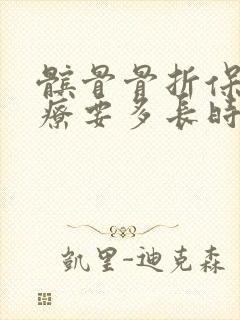 髌骨骨折保
疗要多长时
凯里-迪克森